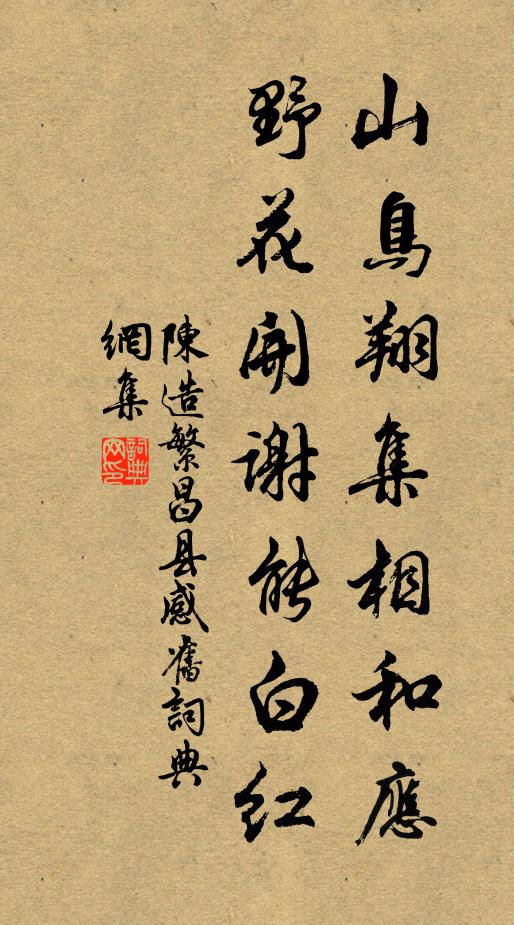 山鳥翔集相和應
野花開謝能白紅
陳造繁昌县感舊詞典
網集
詞典
网印